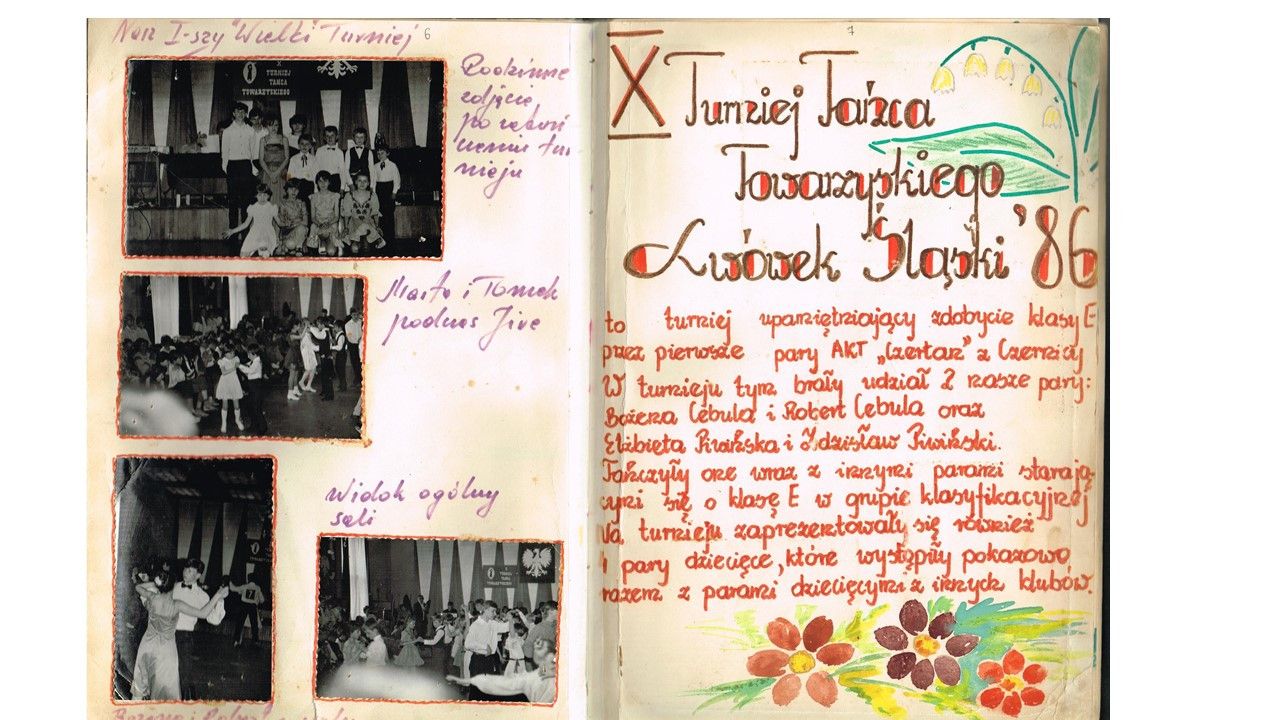 Nasz I-szy "Wielki" Turniej 6
X
TURNIEJ
TAŃCA
TOWARZYSKIEGO
Rodzinne
zdjęcie
po zakoń
czeniu tur
nieju
Marta i Tomek
podczas Jive
Widok ogólny
sali
7
X
TURNIEJ
TAŃCA
TOWARZYSKIEGO
Bożena i Robert
7
X Turniej Tańca
Towarzyskiego
Lwówek Śląski '86
to turniej upamiętniający zdobycie klasy E
przez pierwsze pary AKT „Czertan" z Czernicy
W turnieju tym brały udział 2 nasze pary:
Bożena Cebula i Robert Cebula oraz
Elżbieta Piwińska i Zdzisław Piwiński.
Tańczyły one wraz z innymi parami starają-
cymi się o klasę E w grupie klasyfikacyjnej
Na turnieju zaprezentowały się również
pary dziecięce, które wystąpiły pokazowo
razem z parami dziecięcymi z innych klubów.